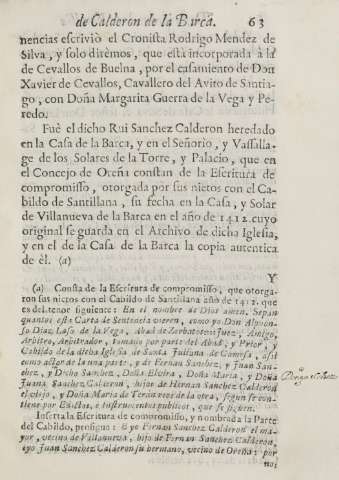 de Calderón de la Barca. 63
nencias escrivió el Cronista Rodrigo Mendez de
Silva, y solo dirèmos, que està incorporada à la
de Cevallos de Buelna, por el casamiento de Don
Xavier de Cevallos, Cavallero del Avito de Santia-
go, con Doña Margarita Guerra de la Vega y Pe-
redo.
Fuè el dicho Rui Sanchez Calderon heredado
en la Casa de la Barca, y en el Señorio, y Vassalla-
ge de los Solares de la Torre, y Palacio, que en
el Concejo de Oreña constan de la Escritura de
compromisso, otorgada por sus nietos con el Ca-
bildo de Santillana, su fecha en la Casa, y Solar
de Villanueva de la Barca en el año de 1412. cuyo
original se guarda en el Archivo de dicha Iglesia,
y en el de la Casa de la Barca la copia autentica
de èl. (a)
Y
(a) Consta de la Escritura de compromisso, que otorga-
ron sus nietos con el Cabildo de Santillana año de 1412. que
es del tenor siguiente: En el nombre de Dios amen. Sepan
quantos esta Carta de Sentencia vieren, como yo Don Alphon-
so Diaz, Laso de la Vega, Abad de Juez, Amigo,
Arbitro, Arbitrador, tomado por parte del Abad, y Prior, y
Cabildo de la dicha Iglesia de Santa Juliana de así
como actor de la una parte, y de Fernan Sanchez, y Juan San-
chez, y Dicho Sanchez, Doña Elvira, Doña Maria, y Doña
Juana Sanchez Calderon, hijos de Hernan Sanchez Calderon
el viejo, y Doña Maria de Teràn reos de la otra, segun se con-
tiene por Escritos, è instrumentos publicos, que se siguen.
Inserta la Escritura de compromisso, y nombrada la Parte
del Cabildo, prosigue: E yo Fernan Sanchez Calderon el ma-
yor, vecino de Villanueva, hijo de Fernan Sanchez Calderon,
eyo Juan Sanchez Calderon su hermano, vecino de Oreña; por
nos